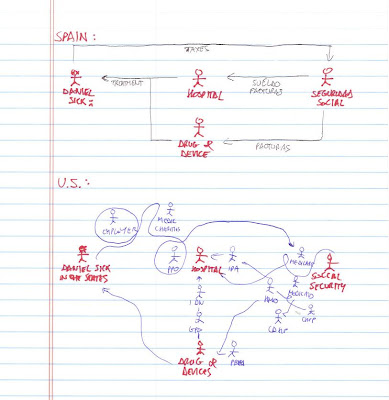 SPAIN:
TAXES
DANIEL
SICK
TREATMENT
HOSPITAL
SUELDO
FACTURAS
SEGURIDAD
SOCIAL
DRUG &
DEVICE
FACTURAS
U.S.:
EMPLOYER
MEDIC
DANIEL SICK
IN THE STATES
PPO
HOSPITAL
IPA
MEDICARE
SOCIAL
SECURITY
IDN
HMO
MEDICAID
GPO
CHIP
DRUG &
DEVICES
PBM